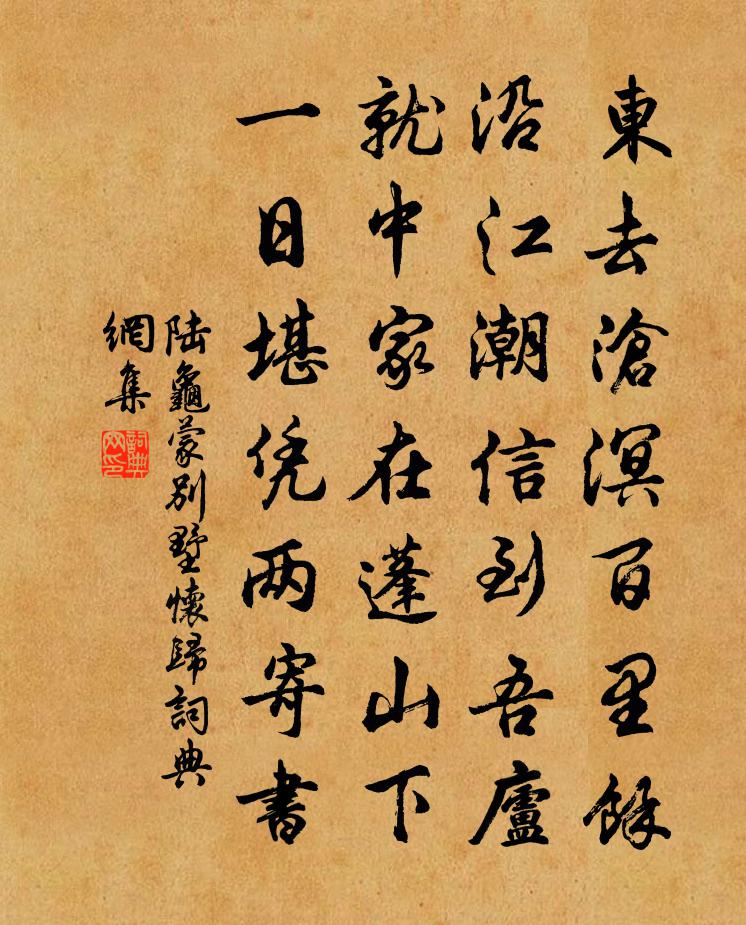 東去滄溟百里餘
沿江潮信到吾廬
就中家在蓬山下
一日堪凭两寄書
陆龜蒙别墅懷歸詞典
網集
詞典
网印